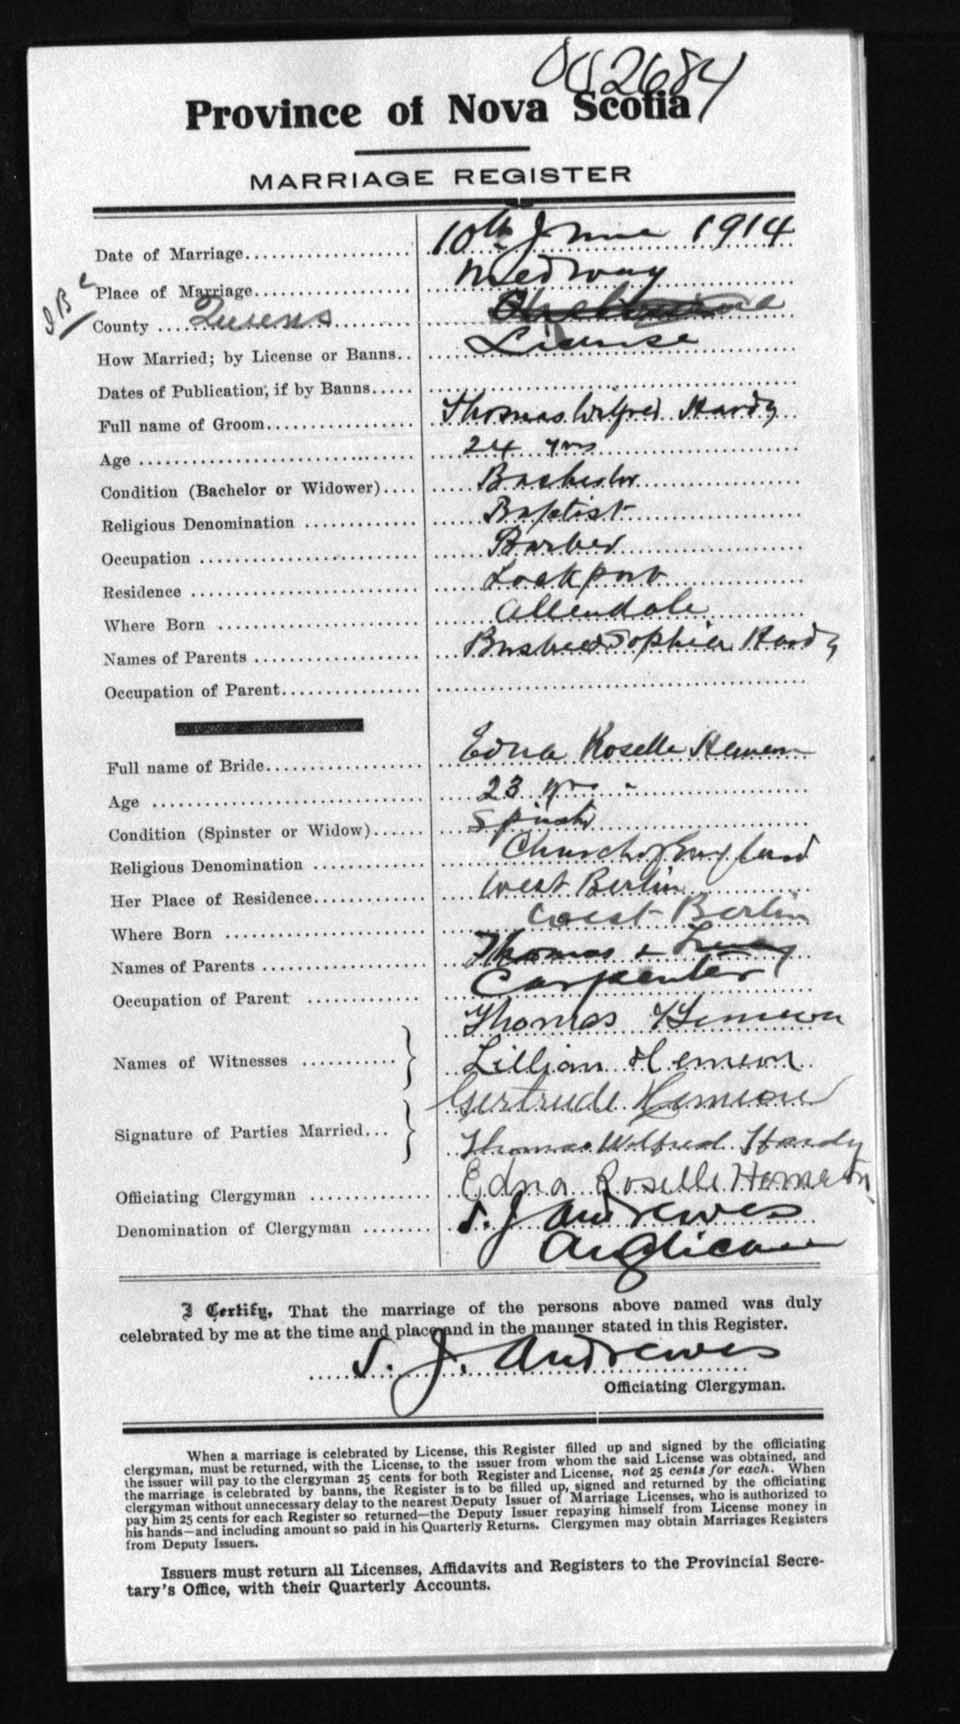 002684
Province of Nova Scotia
MARRIAGE REGISTER
Date of Marriage 10th June 1914
Place of Marriage Medway
County Queens
How Married; by License or Banns License
Dates of Publication, if by Banns
Full name of Groom Thomas Wilfred Hardy
Age 24 yrs
Condition (Bachelor or Widower) Bachelor
Religious Denomination Baptist
Occupation Barber
Residence Lockport
Where Born Allendale
Names of Parents Sophia Hardy
Occupation of Parent
Full name of Bride Edna Roselle Hemeon
Age 23 yrs
Condition (Spinster or Widow) Spinster
Religious Denomination Church of England
Her Place of Residence West Berlin
Where Born West Berlin
Names of Parents Thomas & Lucy
Occupation of Parent Carpenter
Thomas Hemeon
Names of Witnesses Lillian Hemeon
Gertrude Hemeon
Signature of Parties Married Thomas Wilfred Hardy
Edna Roselle Hemeon
Officiating Clergyman S. J. Andrewes
Denomination of Clergyman Anglican
I Certify, That the marriage of the persons above named was duly
celebrated by me at the time and place and in the manner stated in this Register.
S. J. Andrewes
Officiating Clergyman.
When a marriage is celebrated by License, this Register filled up and signed by the officiating
clergyman, must be returned, with the License, to the issuer from whom the said License was obtained, and
the issuer will pay to the clergyman 25 cents for both Register and License, not 25 cents for each. When
the marriage is celebrated by banns, the Register is to be filled up, signed and returned by the officiating
clergyman without unnecessary delay to the nearest Deputy Issuer of Marriage Licenses, who is authorized to
pay him 25 cents for each Register so returned—the Deputy Issuer repaying himself from License money in
his hands—and including amount so paid in his Quarterly Returns. Clergymen may obtain Marriages Registers
from Deputy Issuers.
Issuers must return all Licenses, Affidavits and Registers to the Provincial Secre-
tary's Office, with their Quarterly Accounts.